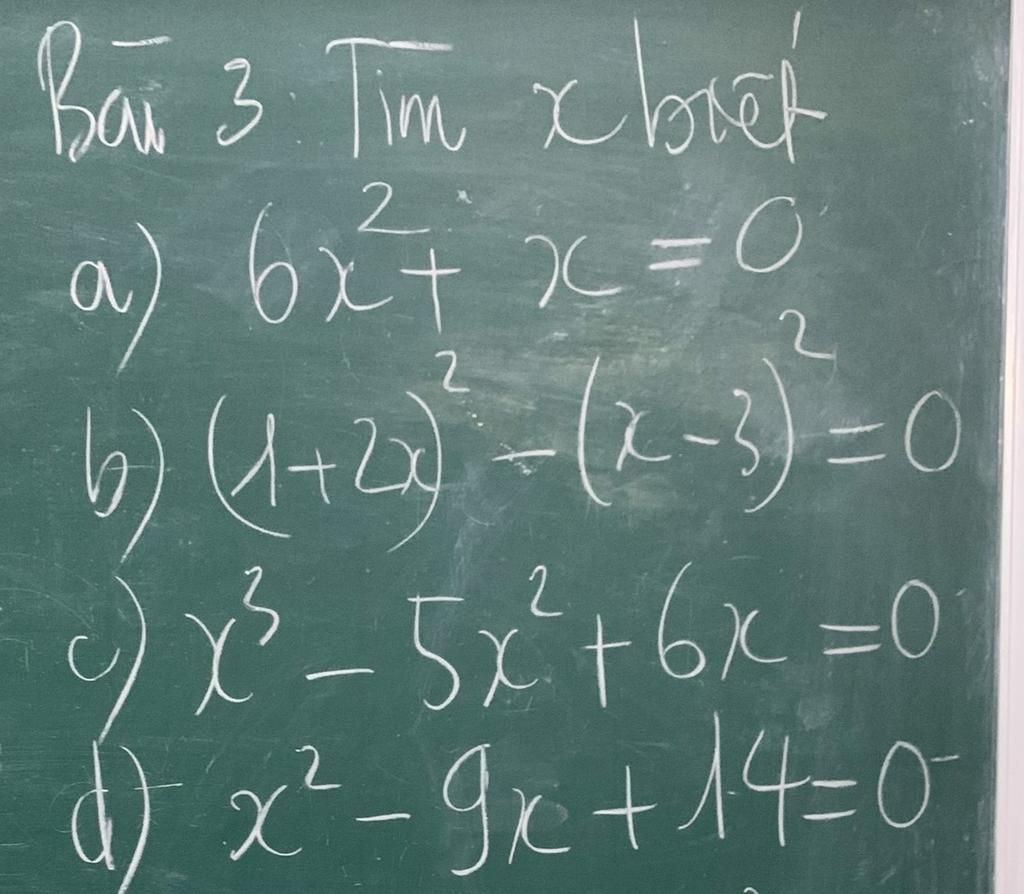 Bài 3. Tìm x biết
a) 6x² + x = 0
b) (1+2x)² - (x-3)² = 0
c) x³ - 5x² + 6x = 0
d) x² - 9x + 14 = 0